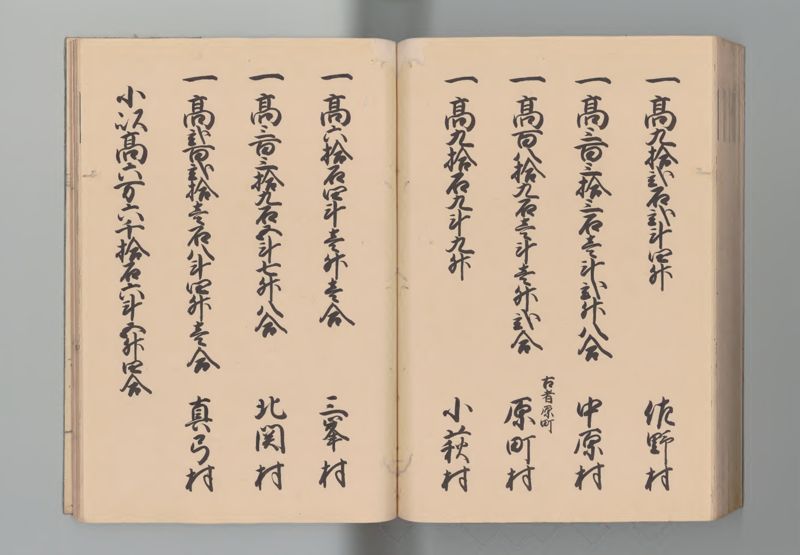 一高九拾弐石弐斗四升 佐野村
一高三百三拾三石壱斗弐升八合 中原村
古者原町
一高百八拾九石壱斗壱升弐合 原町村
一高九拾石九斗九升 小萩村
一高六拾石四斗壱升壱合 三峯村
一高三百三拾九石五斗七升八合 北関村
一高弐百弐拾壱石八斗四升壱合 真弓村
小以高六万六千拾石六斗五升四合